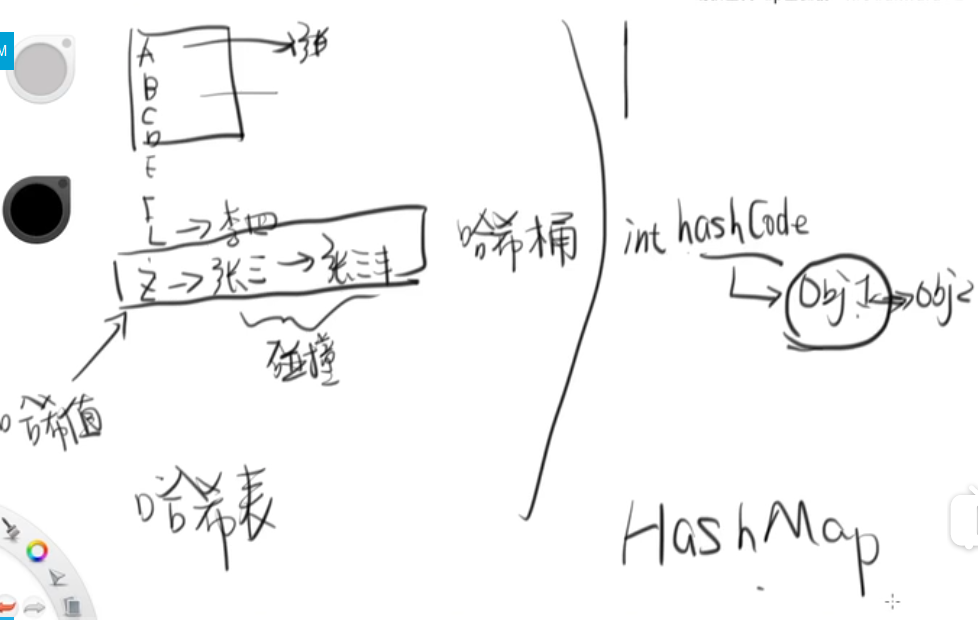 A
B
C
D
E
F
L → 李四
Z → 张三 → 张三丰
碰撞
哈希值
哈希表
哈希桶
int hashCode
Obj1 → obj2
HashMap